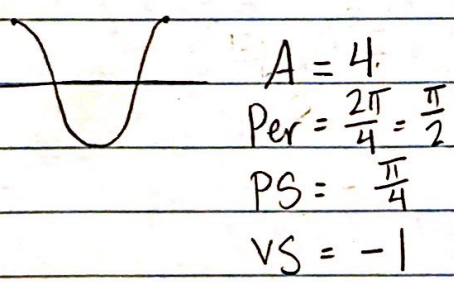 A = 4.
Per = 2π/4 = π/2
PS = π/4
VS = -1